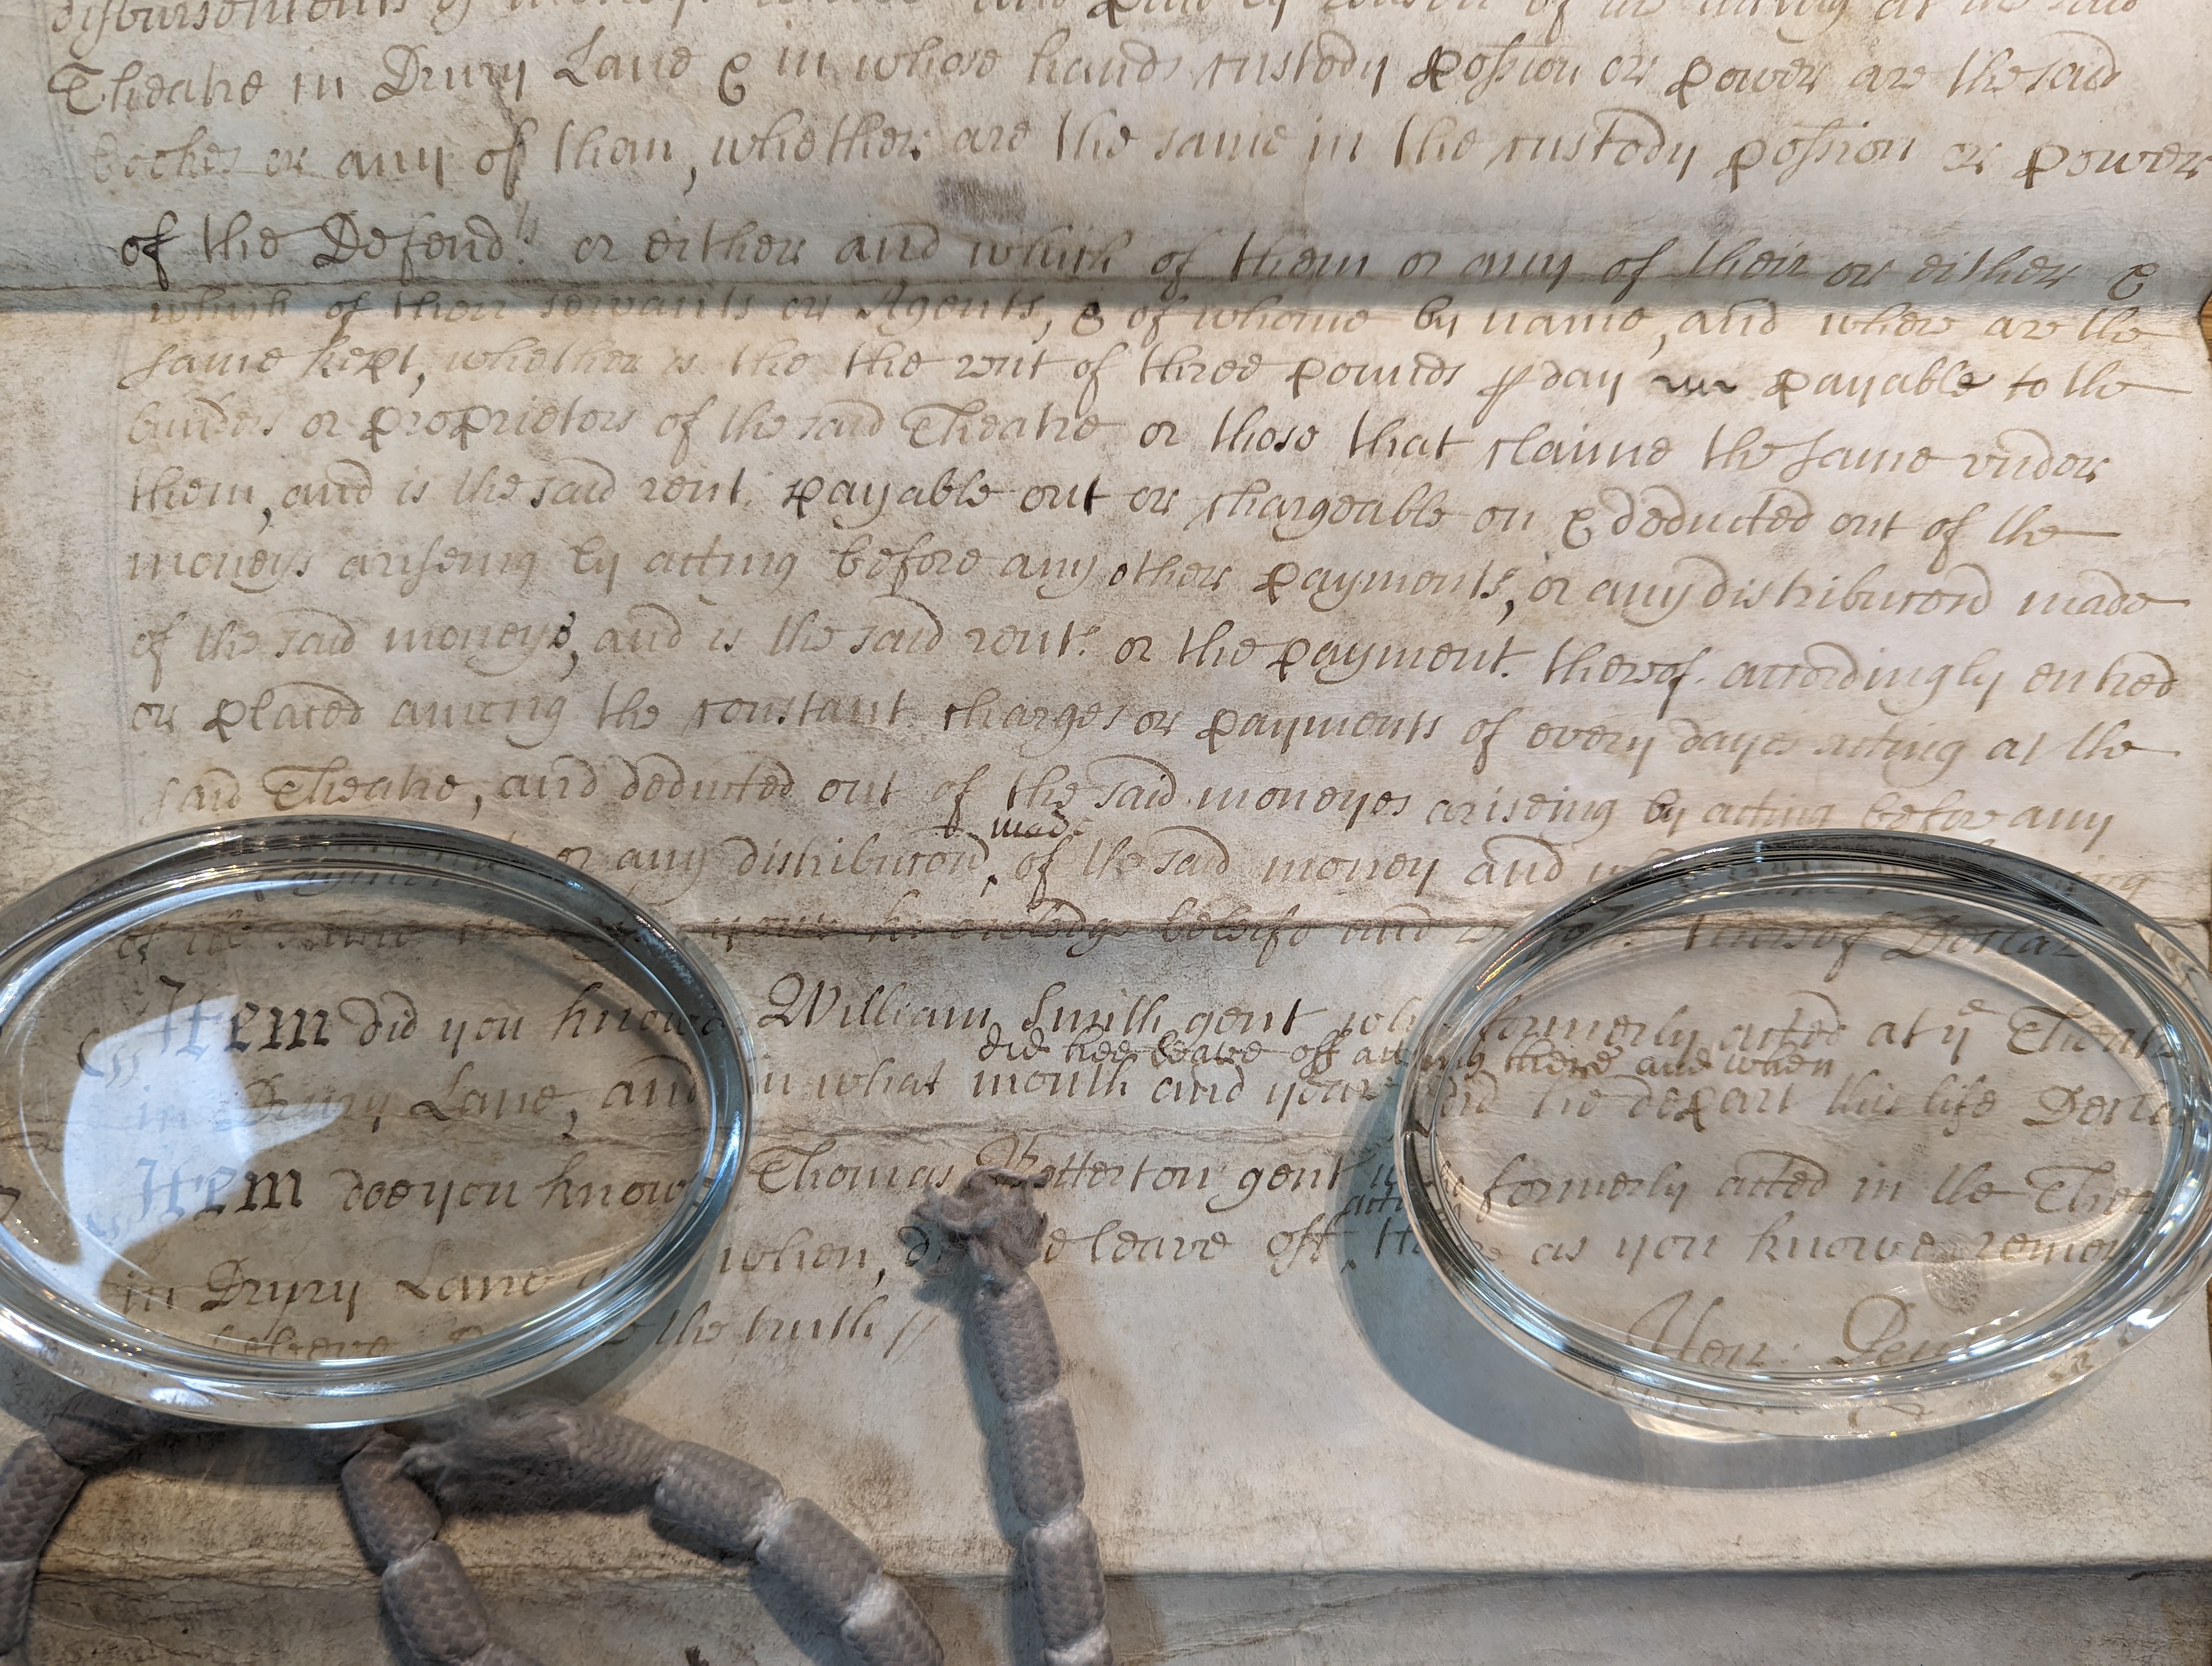 disbursements of
Theatre in Drury Lane & in whose hands custody possion or power are the said
bookes or any of them, whether are the same in the custody possion or power
of the Defendts. or either and which of them or any of their or either &
which of their servants or Agents, & of whome by name, and where are the
same kept, whether is the the rent of three pounds p day payable to the
buildrs or proprietors of the said Theatre or those that claime the same under
them, and is the said rent payable out or chargeable on & deducted out of the
moneys ariseing by acting before any other payments, or any distribucon made
of the said moneys, and is the said rent. or the payment. thereof. accordingly entred
or placed among the constant charges or payments of every dayes acting at the
said Theatre, and deducted out of the said moneyes ariseing by acting before any
made
or any distribucon, of the said money and
of the same knowledge beleife and thereof Declare
Item did you knowe William Smith gent who formerly acted at ye Theatre
did hee leave off acting there and when
in Drury Lane, and in what month and yeare did he depart this life Decla
Item doe you knowe Thomas Betterton gent who formerly acted in the Thea
acting
in Drury Lane when, did he leave off, there as you knowe remem
beleive the truth //
Hen: